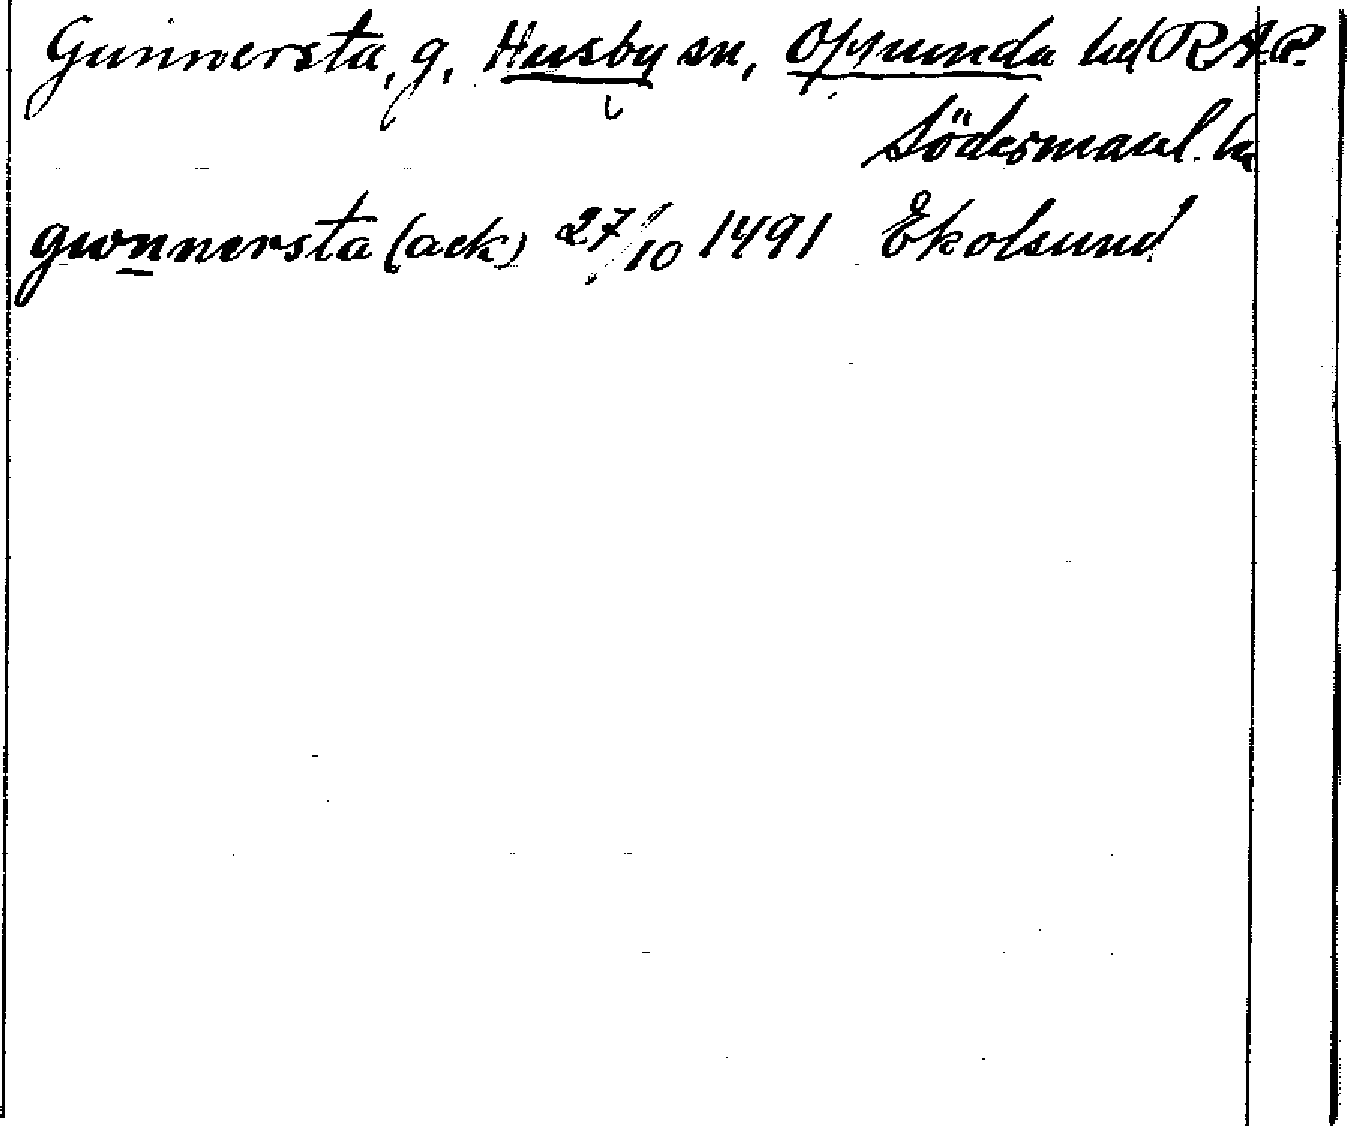 Gunnersta, g. Husby sn, Oppunda hd R.A.P.
Södermanl. län
gwnnersta (ack) 27/10 1491 Ekolsund